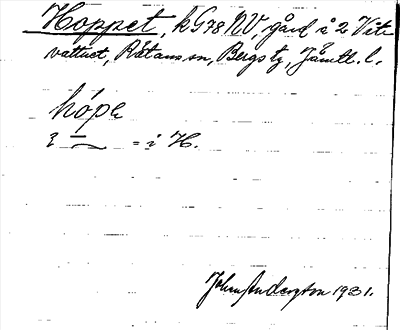 Hoppet, kG78 NV, gård å 2 Vite
vattnet, Rätans sn, Bergs tg, Jämtl. l.
hópe
ʒ — = i H.
John Anderszon 1931.